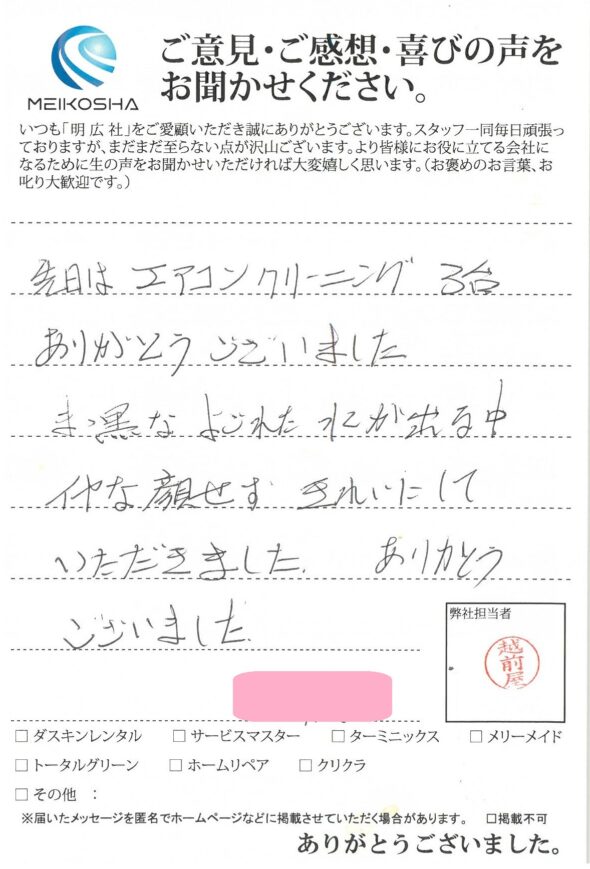 MEIKOSHA
ご意見・ご感想・喜びの声を
お聞かせください。
いつも「明広社」をご愛顧いただき誠にありがとうございます。スタッフ一同毎日頑張っ
ておりますが、まだまだ至らない点が沢山ございます。より皆様にお役に立てる会社に
なるために生の声をお聞かせいただければ大変嬉しく思います。(お褒めのお言葉、お
叱り大歓迎です。)
先日は エアコンクリーニング 3台
ありがとう ございました
まっ黒な よごれた 水が出る中
イヤな顔せず きれいにして
いただきました. ありがとう
ございました.
弊社担当者
越前屋
□ ダスキンレンタル □ サービスマスター □ ターミニックス □ メリーメイド
□ トータルグリーン □ ホームリペア □ クリクラ
□ その他 :
※届いたメッセージを匿名でホームページなどに掲載させていただく場合があります。 □掲載不可
ありがとうございました。